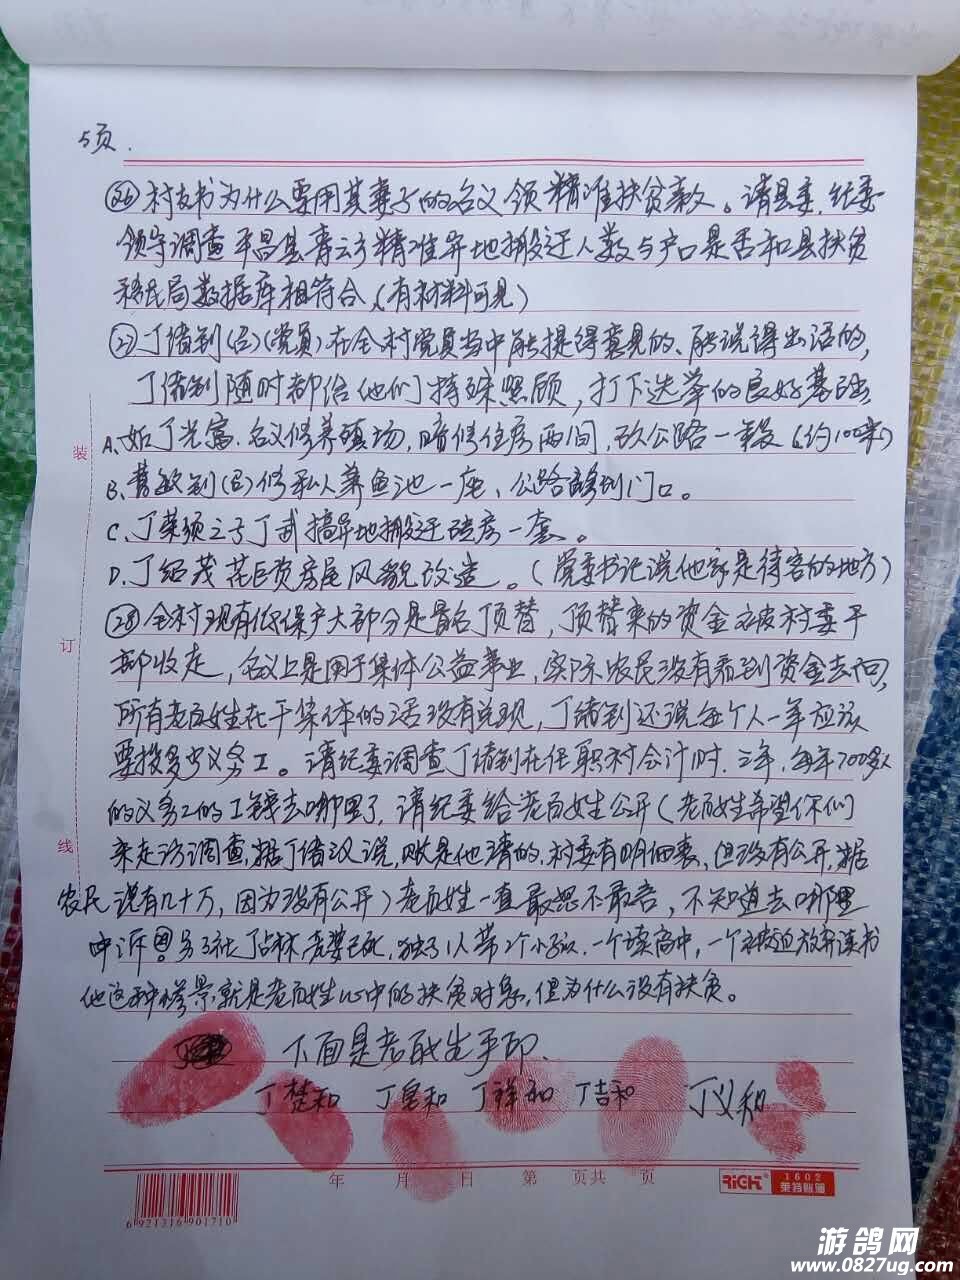 5页.
㉖村支书为什么要用其妻子的名义领精准扶贫款。请县委.纪委
领导调查平昌县青云乡精准异地搬迁人数与户口是否和县扶贫
移民局数据库相符合(有材料可见)
㉗丁绪别(组)(党员)在全村党员当中能提得意见的、能说得出话的,
丁绪别随时都给他们特殊照顾,打下选举的良好基础
A、如丁光富.名义修养殖场,暗修住房两间,砍公路一段(约100米)
B、别(组)修私人养鱼池一座、公路修到门口。
C、丁菜须之子丁武搞异地搬迁砖房一套。
D、丁绍茂花巨资房屋风貌改造。(党委书记说他家是待客的地方)
㉘全村现有低保户大部分是冒名顶替,顶替来的资金又被村委干
部收走,名义上是用于集体公益事业,实际农民没有看到资金去向,
所有老百姓在干集体的活没有兑现,丁绪别还说每个人一年应该
要投多少义务工。请纪委调查丁绪别在任职村会计时.三年.每年700多人
的义务工的工钱去哪里了,请纪委给老百姓公开(老百姓希望你们
来走访调查,据丁绪汉说,账是他清的,村委有明细表,但没有公开,据
农民说有几十万,因为没有公开)老百姓一直敢怒不敢言,不知道去哪里
申诉!另3社丁占林老婆已死,独子1人带2个小孩.一个读高中,一个被迫放弃读书
他这种惨景,就是老百姓心中的扶贫对象,但为什么没有扶贫。
下面是老百姓手印.
丁楚和 丁自和 丁祥和 丁吉和 丁义和
装
订
线
年 月 日 第 页共 页
RiCH 1602
莱特账簿
6 921316 901710
游鸽网
www.0827ug.com